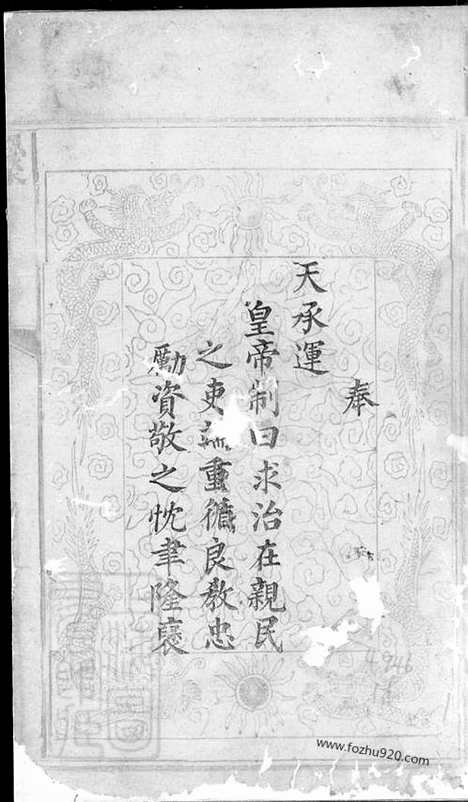 奉
天承運
皇帝制曰求治在親民
之吏 重循良教忠
勵資敬之忱聿隆褒
4946
www.fozhu920.com